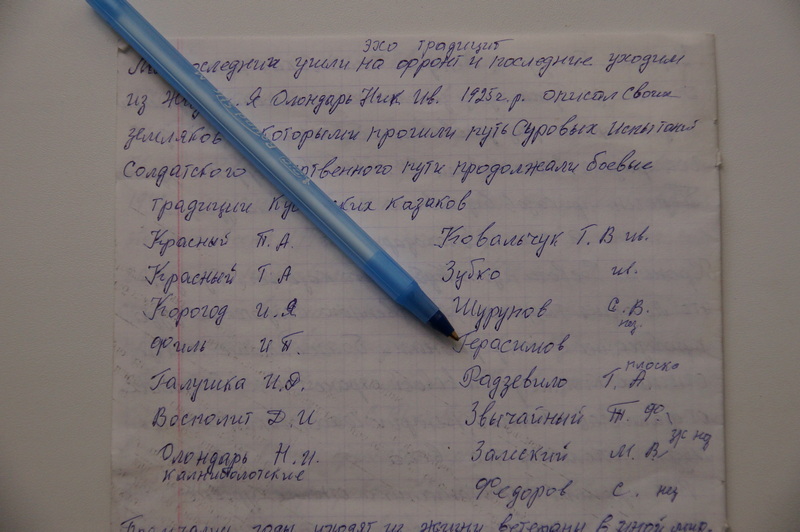 эхо традиций
последних ушли на фронт и последние уходим
из Я Олондарь Ник Ив. 1925г.р. описал своих
земляков которыми прошли путь суровых испытаний
Солдатского пути продолжали боевые
традиции казаков
Красный П.А.
Красный Г А
Корогод И.Я
Филь И П.
Галушка И.Д.
Восполит Д.И
Олондарь Н.И.
калниболотские
Ковальчук Т. В ив.
Зубко ив.
Шурупов С.В.
нез.
Герасимов
плоско
Радзевило Г. А
Звычайный Т. Ф,
Замский М. В,
Федоров С. нез
годы уходят из жизни ветераны в